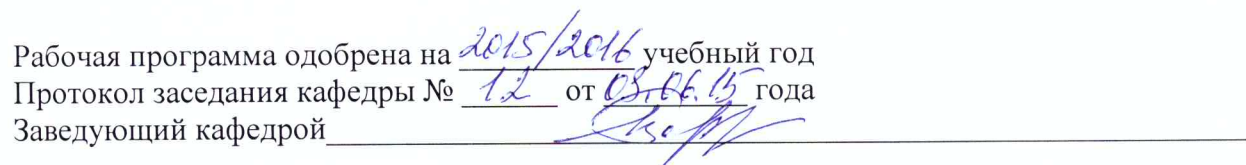 Рабочая программа одобрена на 2015/2016 учебный год
Протокол заседания кафедры № 12 от 03.06.15 года
Заведующий кафедрой